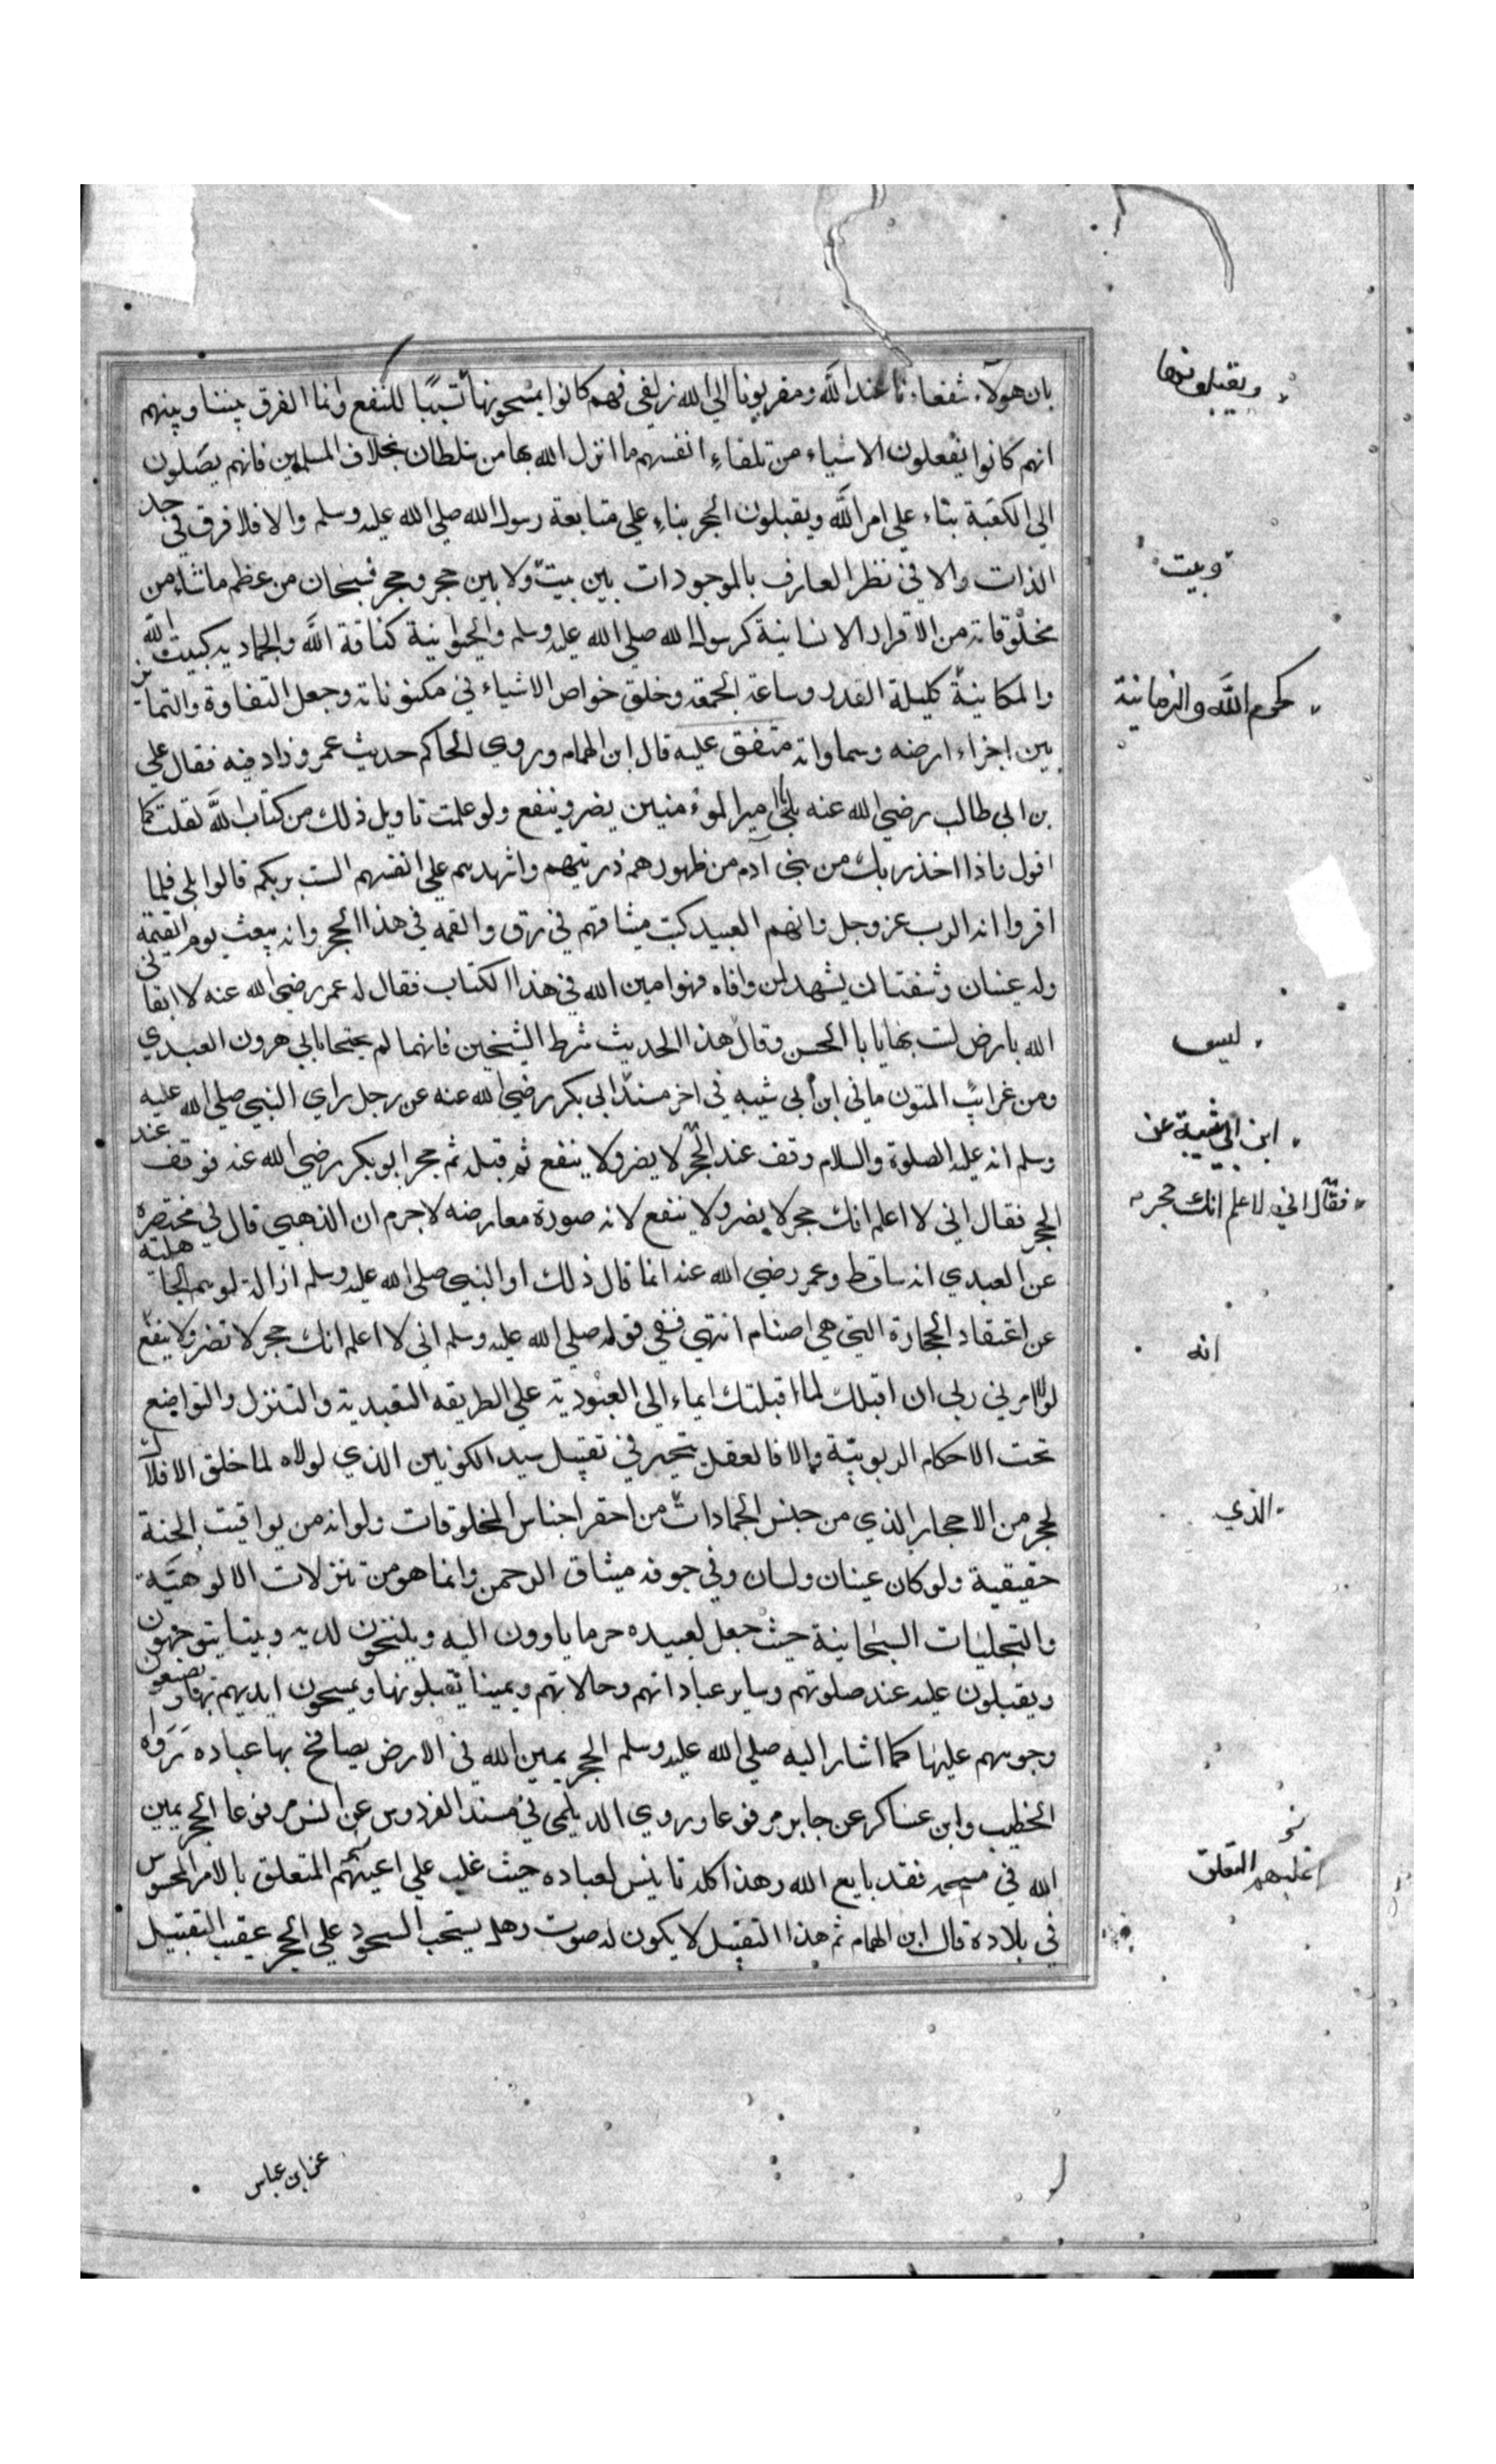 بان هولآء شفعاءنا عند الله ومقربونا الي الله زلفي فهم كانوا يمسحونها تسببا للنفع وانما الفرق بيننا وبينهم
انهم كانوا يفعلون الاشياء من تلقاء انفسهم ما انزل الله بها من سلطان بخلاف المسلمين فانهم يصلون
الي الكعبة بناء علي امر الله ويقبلون الحجر بناء علي متابعة رسول الله صلي الله عليه وسلم والا فلا فرق في حد
الذات والا في نظر العارف بالموجودات بين بيت ولا بين حجر وحجر فسبحان من عظم ماشاء من
مخلوقاته من الافراد الانسانية كرسول الله صلي الله عليه وسلم والحيوانية كناقة الله والجماديه كبيت الله
والمكانية كليلة القدر وساعة الجمعة وخلق خواص الاشياء في مكنوناته وجعل التفاوة والتمايز
بين اجزاء ارضه وسماواته متفق عليه قال ابن الهمام وروي الحاكم حديث عمر وزاد فيه فقال علي
بن ابي طالب رضي الله عنه بلي يا امير المومنين يضر وينفع ولو علمت تاويل ذلك من كتاب الله لقلت كما
اقول واذا اخذ ربك من بني آدم من ظهورهم ذريتهم واشهدهم علي انفسهم الست بربكم قالوا بلي فلما
اقروا انه الرب عز وجل وانهم العبيد كتب ميثاقهم في رق والقمه في هذا الحجر وانه يبعث يوم القيمة
وله عينان وشفتان يشهد لمن وافاه فهو امين الله في هذا الكتاب فقال له عمر رضي الله عنه لا ابقاني
الله بارض لست بها يا با الحسن وقال هذا الحديث شرط الشيخين فانهما لم يحتجا بابي هرون العبدي
ومن غرائب المتون ما في ابن ابي شيبه في اخر مسند ابي بكر رضي الله عنه عن رجل راي النبي صلي الله عليه
وسلم انه عليه الصلوة والسلام وقف عند الحجر لا يضر ولا ينفع ثم قبله ثم حجر ابو بكر رضي الله عنه فوقف عند
الحجر فقال اني لا اعلم انك حجر لا يضر ولا ينفع لانه صورة معارضه لا جرم ان الذهبي قال في مختصره
عن العبدي انه ساقط وعمر رضي الله عنه انما قال ذلك او النبي صلي الله عليه وسلم ازالة لوهم الجاهلية
عن اعتقاد الحجارة التي هي اصنام انتهي ففي قوله صلي الله عليه وسلم اني لا اعلم انك حجر لا تضر ولا ينفع
لولا امرني ربي ان اقبلك لما اقبلتك ايماء الي العبودية علي الطريقه التعبدية والتنزل والتواضع
تحت الاحكام الربوبية والا فالعقل يتحير في تقبيل سيد الكونين الذي لولاه لما خلق الافلاك
لحجر من الاحجار الذي من جنس الجمادات من احقر اجناس المخلوقات ولو انه من يواقيت الجنة
حقيقية ولو كان عينان ولسان وفي جوفه ميثاق الرحمن وانما هو من تنزلات الالوهية
والتجليات السبحانية حيث جعل لعبيده حرما ياوون اليه ويلتجون لديه وبيتا يتوجهون
ويقبلون عليه عند صلوتهم وساير عباداتهم وحالاتهم ويمينا يقبلونها ويمسحون ايديهم بها ويضعون
وجوههم عليها كما اشار اليه صلي الله عليه وسلم الحجر يمين الله في الارض يصافح بها عباده رواه
الخطيب وابن عساكر عن جابر مرفوعا وروي الديلمي في مسند الفردوس عن انس مرفوعا الحجر يمين
الله في مسحه فقد بايع الله وهذا كله تانيس لعباده حيث غلب علي اعينهم المتعلق بالامر المحسوس
في بلاده قال ابن الهمام ثم هذا التقبيل لا يكون له صوت وهل يستحب السجود علي الحجر عقيب التقبيل
ويقبلونها
وبيت
كحرم الله والزمانية
ليس
ابن ابي شيبة عن
فقال اني لاعلم انك حجر
انه
الذي
التعلق
عن ابن عباس